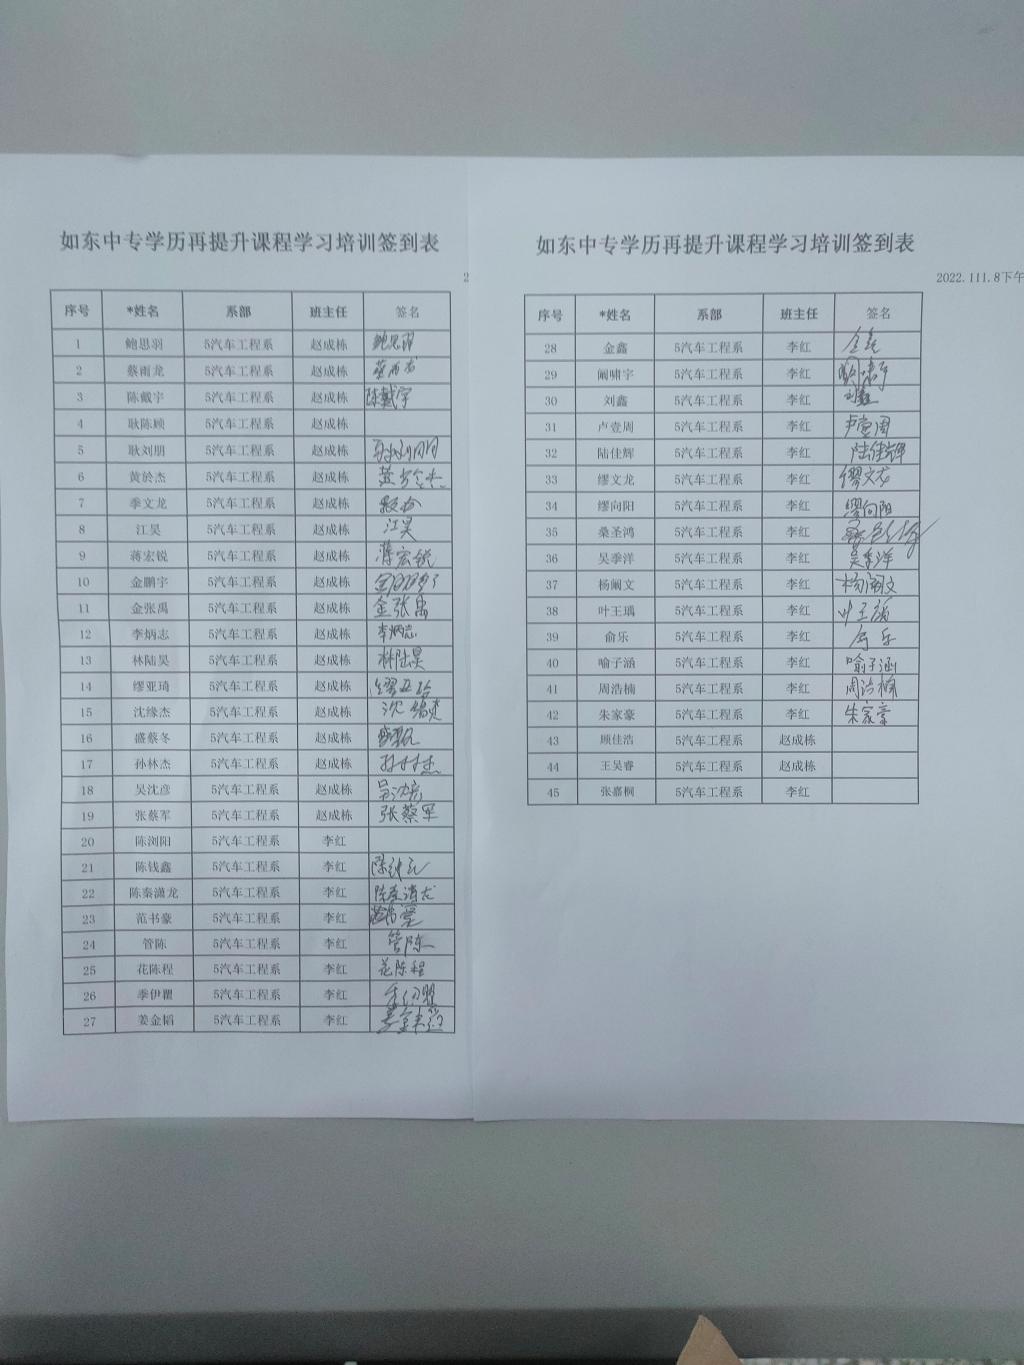 如东中专学历再提升课程学习培训签到表
2
序号 *姓名 系部 班主任 签名
1 鲍思羽 5汽车工程系 赵成栋 鲍思羽
2 蔡雨龙 5汽车工程系 赵成栋 蔡雨龙
3 陈戴宇 5汽车工程系 赵成栋 陈戴宇
4 耿陈顾 5汽车工程系 赵成栋
5 耿刘朋 5汽车工程系 赵成栋 耿刘朋
6 黄於杰 5汽车工程系 赵成栋 黄於杰
7 季文龙 5汽车工程系 赵成栋
8 江昊 5汽车工程系 赵成栋 江昊
9 蒋宏锐 5汽车工程系 赵成栋 蒋宏锐
10 金鹏宇 5汽车工程系 赵成栋 金鹏宇
11 金张禹 5汽车工程系 赵成栋 金张禹
12 李炳志 5汽车工程系 赵成栋 李炳志
13 林陆昊 5汽车工程系 赵成栋 林陆昊
14 缪亚琦 5汽车工程系 赵成栋 缪亚琦
15 沈缘杰 5汽车工程系 赵成栋 沈缘杰
16 盛蔡冬 5汽车工程系 赵成栋
17 孙林杰 5汽车工程系 赵成栋 孙林杰
18 吴沈彦 5汽车工程系 赵成栋 吴沈彦
19 张蔡军 5汽车工程系 赵成栋 张蔡军
20 陈浏阳 5汽车工程系 李红
21 陈钱鑫 5汽车工程系 李红 陈钱鑫
22 陈秦潇龙 5汽车工程系 李红 陈秦潇龙
23 范书豪 5汽车工程系 李红 范书豪
24 管陈 5汽车工程系 李红 管陈
25 花陈程 5汽车工程系 李红 花陈程
26 季伊瞿 5汽车工程系 李红 季伊瞿
27 姜金韬 5汽车工程系 李红 姜金韬
如东中专学历再提升课程学习培训签到表
2022.111.8下午
序号 *姓名 系部 班主任 签名
28 金鑫 5汽车工程系 李红 金鑫
29 阚啸宇 5汽车工程系 李红 阚啸宇
30 刘鑫 5汽车工程系 李红 刘鑫
31 卢壹周 5汽车工程系 李红 卢壹周
32 陆佳辉 5汽车工程系 李红 陆佳辉
33 缪文龙 5汽车工程系 李红 缪文龙
34 缪向阳 5汽车工程系 李红 缪向阳
35 桑圣鸿 5汽车工程系 李红 桑圣鸿
36 吴季洋 5汽车工程系 李红 吴季洋
37 杨阚文 5汽车工程系 李红 杨阚文
38 叶王瑀 5汽车工程系 李红 叶王瑀
39 俞乐 5汽车工程系 李红 俞乐
40 喻子涵 5汽车工程系 李红 喻子涵
41 周浩楠 5汽车工程系 李红 周浩楠
42 朱家豪 5汽车工程系 李红 朱家豪
43 顾佳浩 5汽车工程系 赵成栋
44 王吴睿 5汽车工程系 赵成栋
45 张嘉桐 5汽车工程系 李红